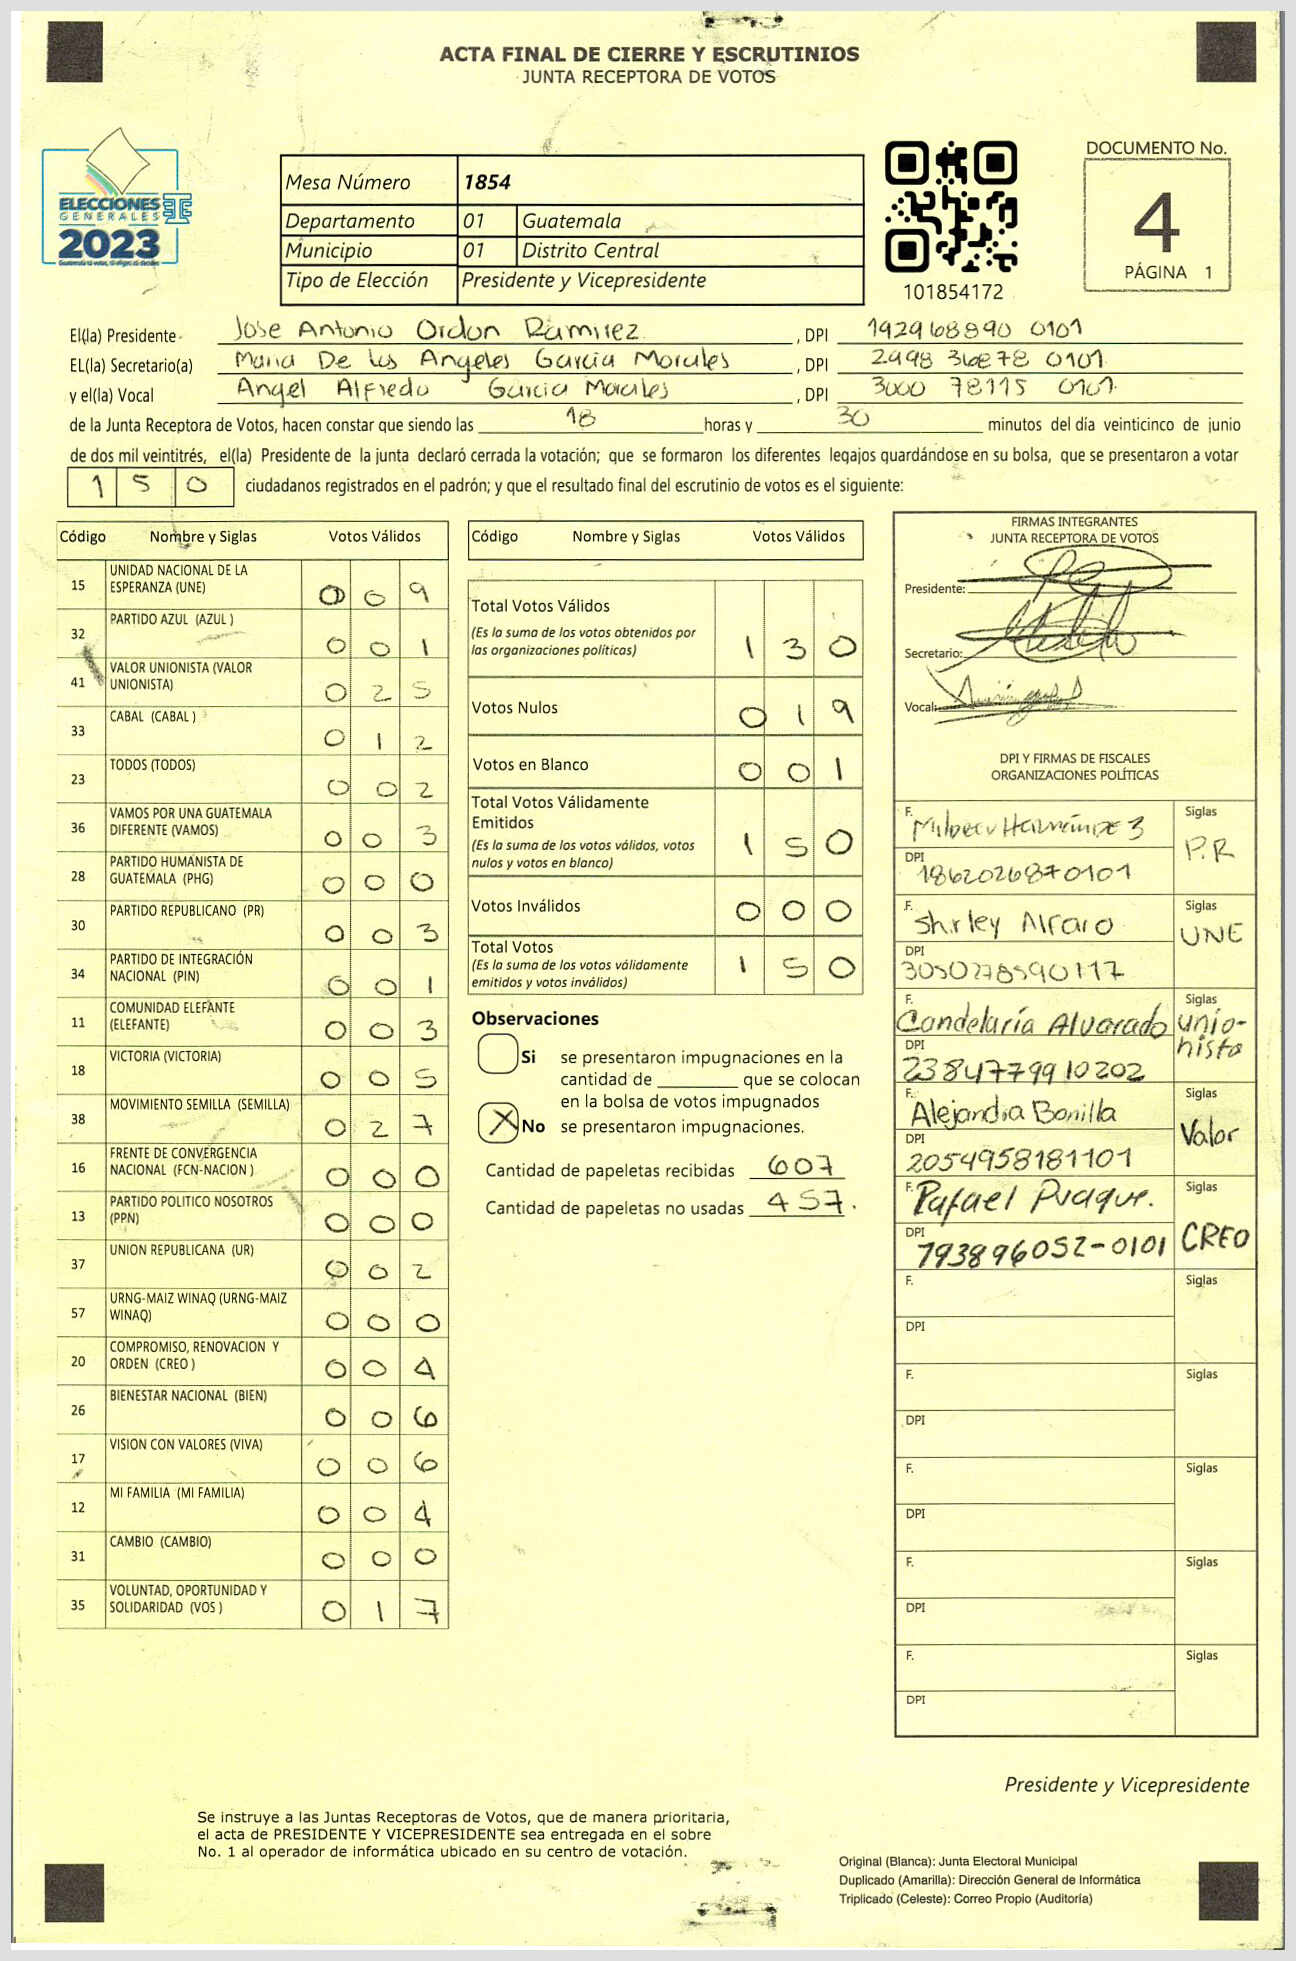 ACTA FINAL DE CIERRE Y ESCRUTINIOS
JUNTA RECEPTORA DE VOTOS
ELECCIONES
GENERALES
2023
Mesa Número 1854
Departamento 01 Guatemala
Municipio 01 Distrito Central
Tipo de Elección Presidente y Vicepresidente
101854172
DOCUMENTO No.
4
PÁGINA 1
El(la) Presidente Jose Antonio Ordon Ramirez, DPI 192968890 0101
EL(la) Secretario(a) Maria De los Angeles Garcia Morales, DPI 2998 36878 0101
y el(la) Vocal Angel Alfredo Garcia Morales, DPI 3000 78115 0101
de la Junta Receptora de Votos, hacen constar que siendo las 18 horas y 30 minutos del día veinticinco de junio
de dos mil veintitrés, el(la) Presidente de la junta declaró cerrada la votación; que se formaron los diferentes legajos guardándose en su bolsa, que se presentaron a votar
150 ciudadanos registrados en el padrón; y que el resultado final del escrutinio de votos es el siguiente:
Código Nombre y Siglas Votos Válidos
15 UNIDAD NACIONAL DE LA ESPERANZA (UNE) 009
32 PARTIDO AZUL (AZUL ) 001
41 VALOR UNIONISTA (VALOR UNIONISTA) 025
33 CABAL (CABAL ) 012
23 TODOS (TODOS) 002
36 VAMOS POR UNA GUATEMALA DIFERENTE (VAMOS) 003
28 PARTIDO HUMANISTA DE GUATEMALA (PHG) 000
30 PARTIDO REPUBLICANO (PR) 003
34 PARTIDO DE INTEGRACIÓN NACIONAL (PIN) 001
11 COMUNIDAD ELEFANTE (ELEFANTE) 003
18 VICTORIA (VICTORIA) 005
38 MOVIMIENTO SEMILLA (SEMILLA) 027
16 FRENTE DE CONVERGENCIA NACIONAL (FCN-NACION ) 000
13 PARTIDO POLITICO NOSOTROS (PPN) 000
37 UNION REPUBLICANA (UR) 002
57 URNG-MAIZ WINAQ (URNG-MAIZ WINAQ) 000
20 COMPROMISO, RENOVACION Y ORDEN (CREO ) 004
26 BIENESTAR NACIONAL (BIEN) 006
17 VISION CON VALORES (VIVA) 006
12 MI FAMILIA (MI FAMILIA) 004
31 CAMBIO (CAMBIO) 000
35 VOLUNTAD, OPORTUNIDAD Y SOLIDARIDAD (VOS ) 017
Código Nombre y Siglas Votos Válidos
Total Votos Válidos 130
(Es la suma de los votos obtenidos por
las organizaciones políticas)
Votos Nulos 019
Votos en Blanco 001
Total Votos Válidamente
Emitidos 150
(Es la suma de los votos válidos, votos
nulos y votos en blanco)
Votos Inválidos 000
Total Votos 150
(Es la suma de los votos válidamente
emitidos y votos inválidos)
Observaciones
Si se presentaron impugnaciones en la
cantidad de ________ que se colocan
en la bolsa de votos impugnados
X No se presentaron impugnaciones.
Cantidad de papeletas recibidas 607
Cantidad de papeletas no usadas 457.
FIRMAS INTEGRANTES
JUNTA RECEPTORA DE VOTOS
Presidente:
Secretario:
Vocal:
DPI Y FIRMAS DE FISCALES
ORGANIZACIONES POLÍTICAS
F. Siglas P.R
DPI 1862026870101
F. Shirley Alfaro Siglas UNE
DPI 3050278590117
F. Candelaría Alvarado Siglas unio-
nista
DPI 2384779910202
F. Alejandra Bonilla Siglas Valor
DPI 2054958181101
F. Rafael Siglas CREO
DPI 793896052-0101
F. Siglas
DPI
F. Siglas
DPI
F. Siglas
DPI
F. Siglas
DPI
F. Siglas
DPI
Presidente y Vicepresidente
Se instruye a las Juntas Receptoras de Votos, que de manera prioritaria,
el acta de PRESIDENTE Y VICEPRESIDENTE sea entregada en el sobre
No. 1 al operador de informática ubicado en su centro de votación.
Original (Blanca): Junta Electoral Municipal
Duplicado (Amarilla): Dirección General de Informática
Triplicado (Celeste): Correo Propio (Auditoría)